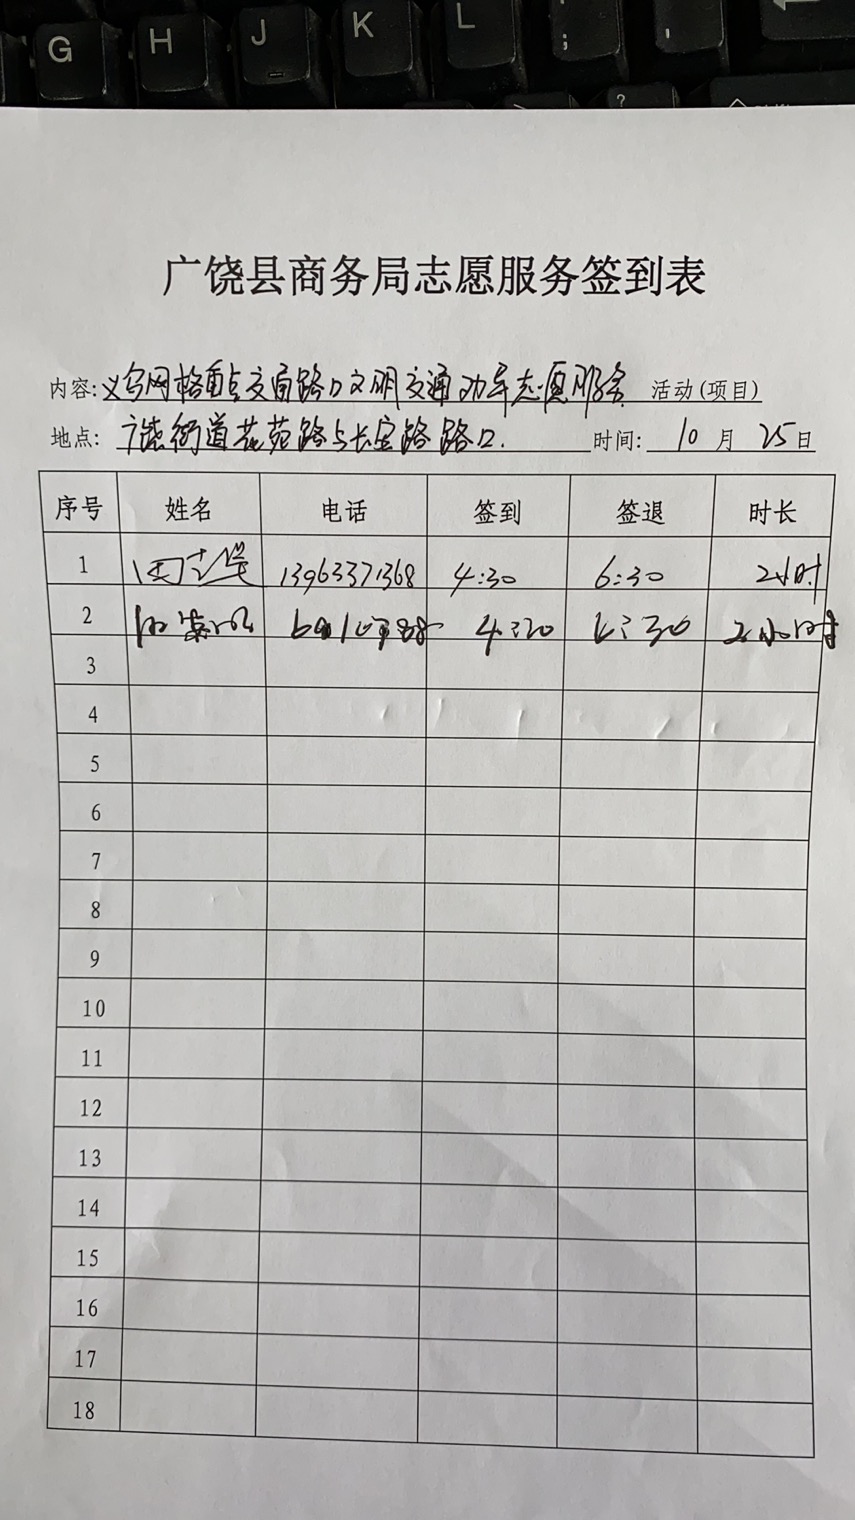 G H J K L ; '
?
广饶县商务局志愿服务签到表
内容: 义乌网格重点交通路口文明交通劝导志愿服务 活动(项目)
地点: 广饶街道花苑路与长安路路口. 时间: 10 月 25 日
序号 姓名 电话 签到 签退 时长
1 13963371368 4:30 6:30 2小时
2 4:30 6:30 2小时
3
4
5
6
7
8
9
10
11
12
13
14
15
16
17
18